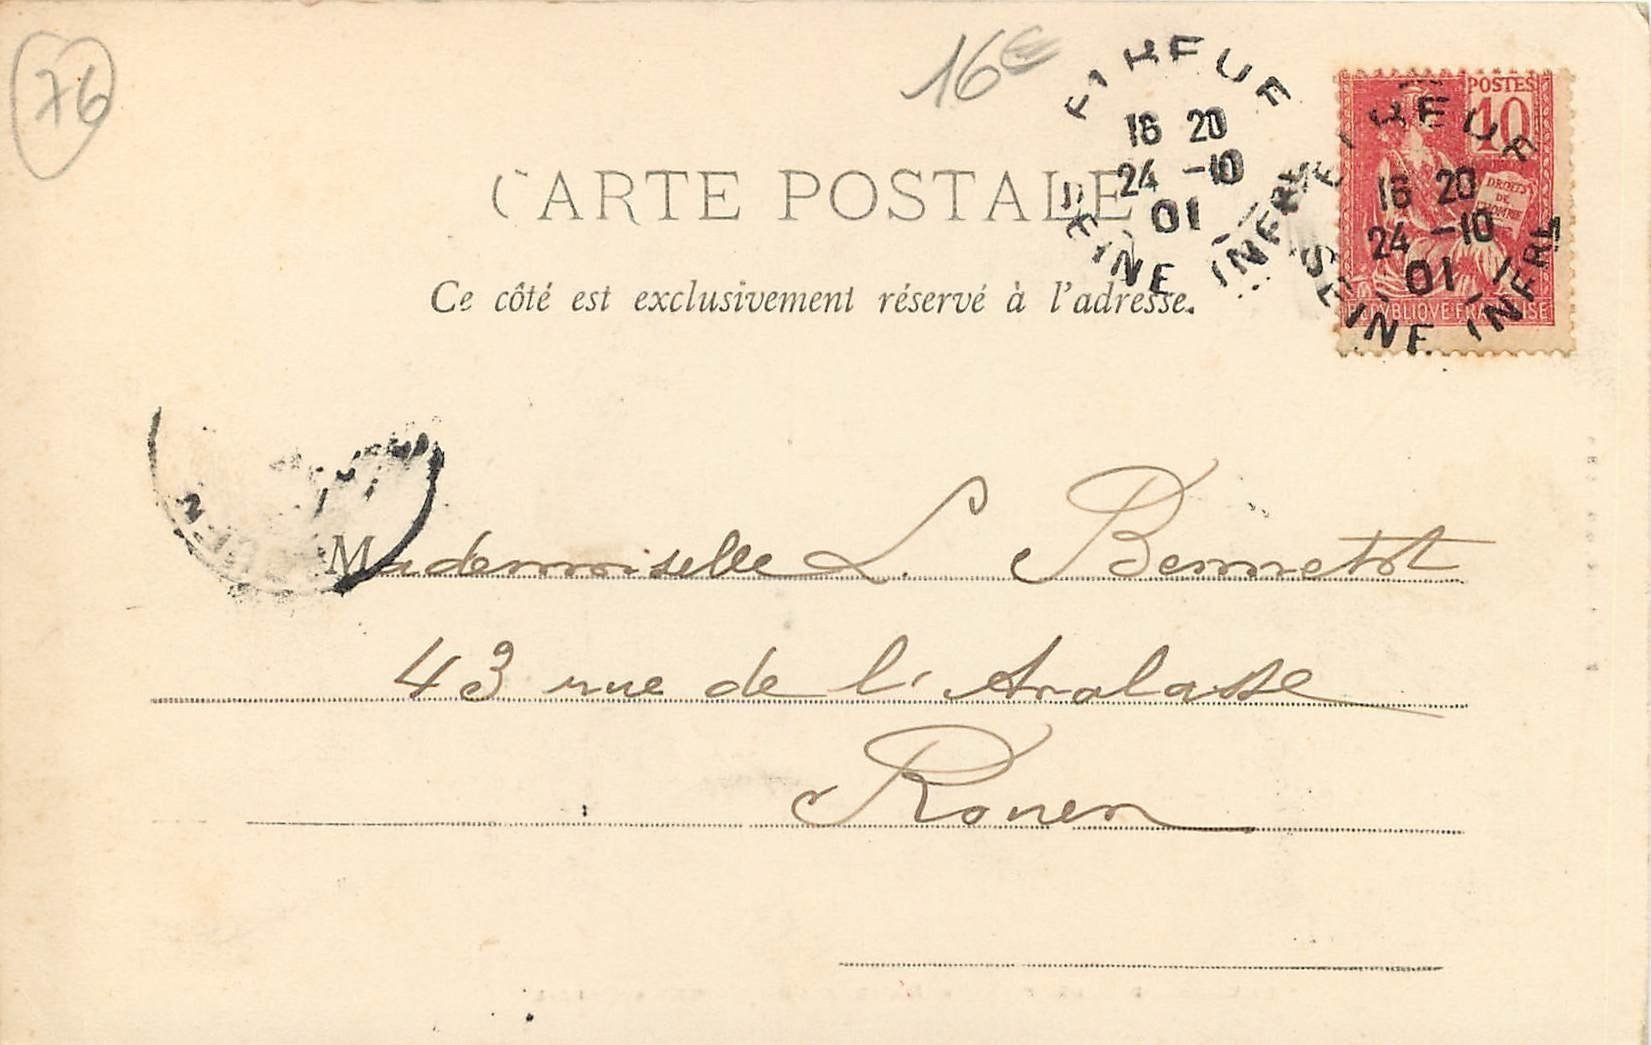 76
16€
CARTE POSTALE
Ce côté est exclusivement réservé à l'adresse.
16 20
24 -10
01
SEINE INFRE
POSTES
10
DROITS
DE
L'HOMME
16 20
24 -10
01
SEINE INFRE
REPUBLIQUE FRANÇAISE
Mademoiselle L. Bennetot
43 rue de l'Avalasse
Rouen